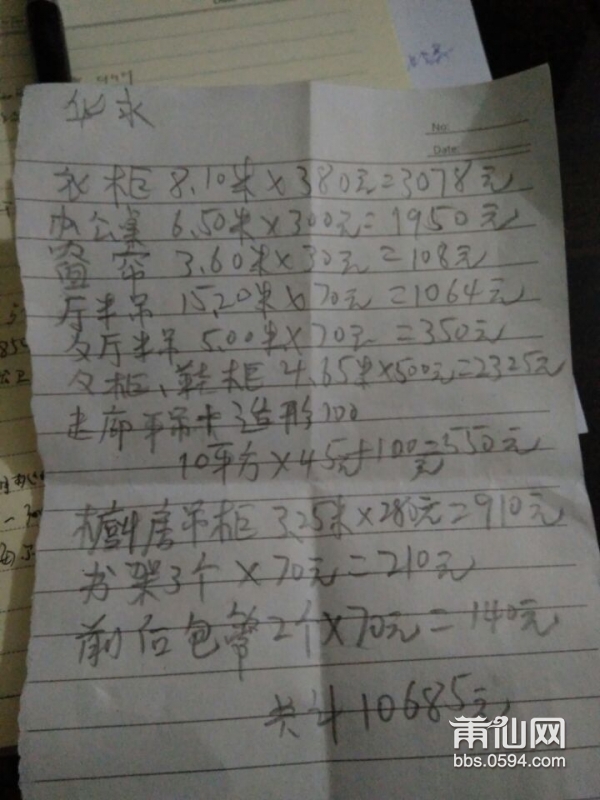 华永
No:
Date:
衣柜 8.10米×380元=3078元
办公桌 6.50米×300元=1950元
窗帘 3.60米×30元=108元
厅半吊 15.20米×70元=1064元
父厅半吊 5.00米×70元=350元
父柜、鞋柜 4.65米×500元=2325元
走廊平吊+造形100
10平方×45元+100元=550元
房吊柜 3.25米×280元=910元
书架3个×70元=210元
前后包管2个×70元=140元
共计10685元
莆仙网
bbs.0594.com